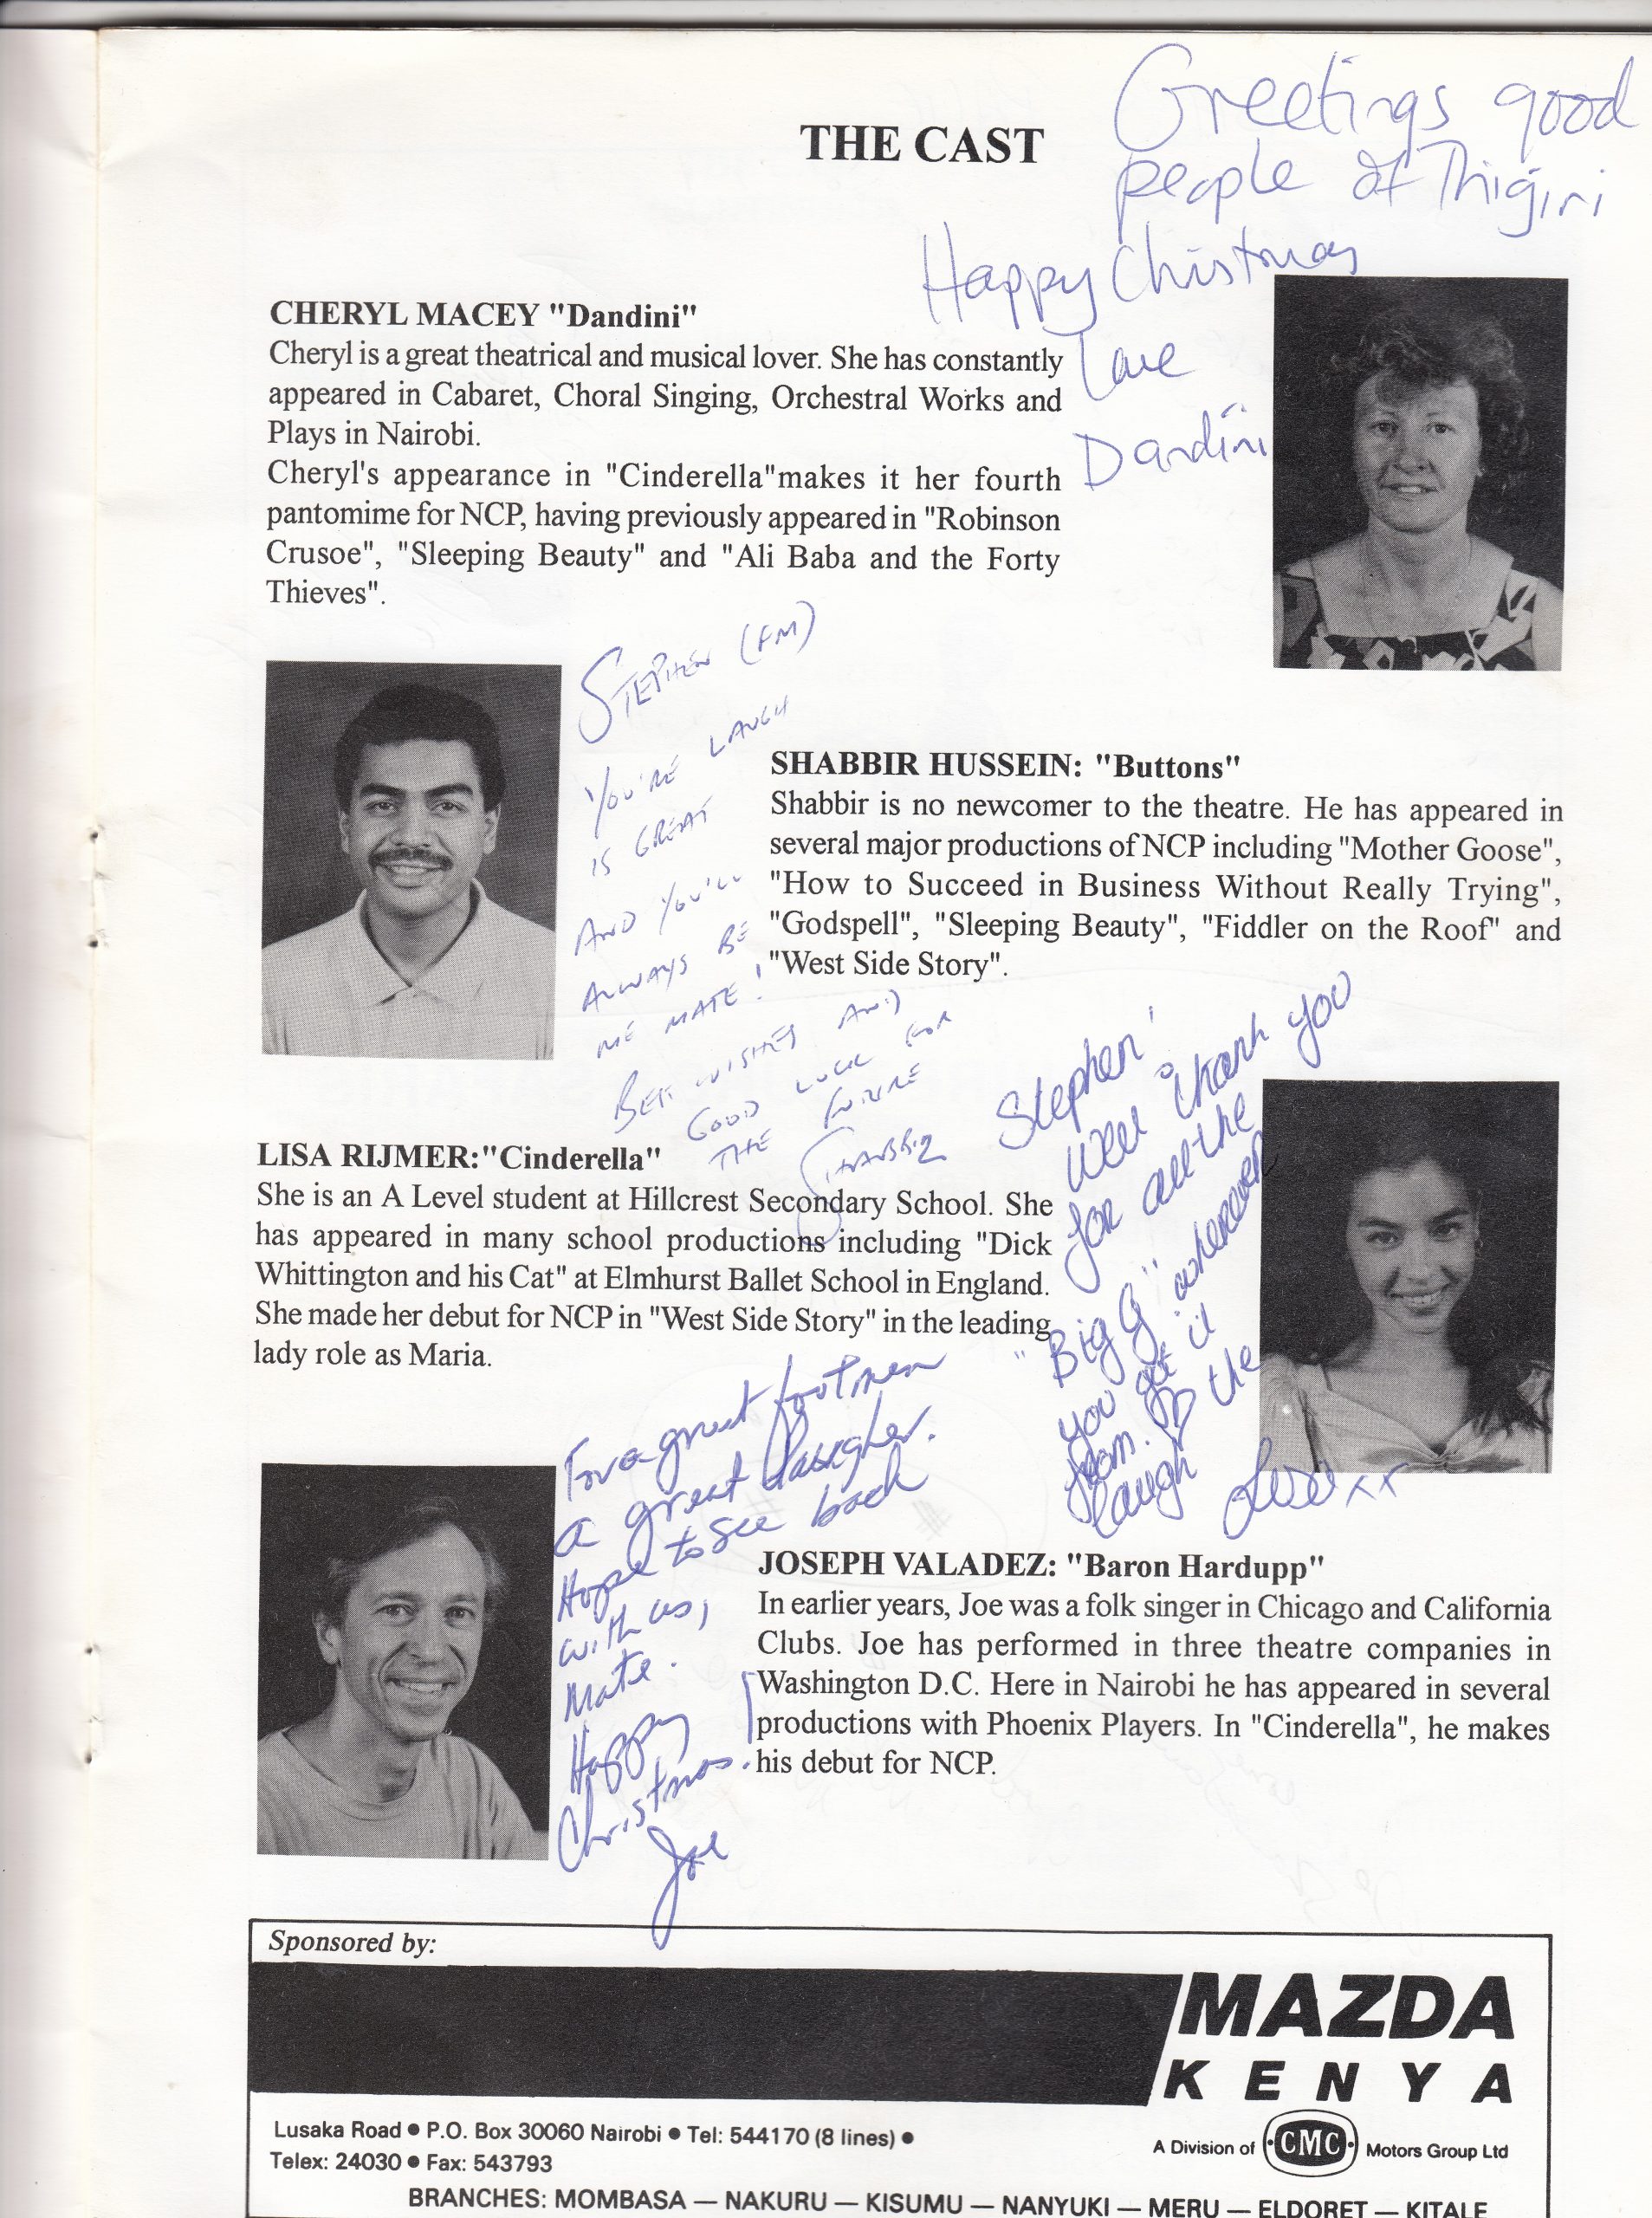 THE CAST
Greetings good
people of Thigiri
Happy Christmas
Love
Dandini
CHERYL MACEY "Dandini"
Cheryl is a great theatrical and musical lover. She has constantly
appeared in Cabaret, Choral Singing, Orchestral Works and
Plays in Nairobi.
Cheryl's appearance in "Cinderella"makes it her fourth
pantomime for NCP, having previously appeared in "Robinson
Crusoe", "Sleeping Beauty" and "Ali Baba and the Forty
Thieves".
STEPHEN (FM)
YOU'RE LAUGH
IS GREAT
AND YOU'LL
ALWAYS BE
ME MATE!
BEST WISHES AND
GOOD LUCK FOR
THE FUTURE
SHABBIR HUSSEIN: "Buttons"
Shabbir is no newcomer to the theatre. He has appeared in
several major productions of NCP including "Mother Goose",
"How to Succeed in Business Without Really Trying",
"Godspell", "Sleeping Beauty", "Fiddler on the Roof" and
"West Side Story".
Stephen'
Well thank you
for all the
"Big G" wherever
you get it
from. ♡ the
laugh
Lisa xx
LISA RIJMER:"Cinderella"
She is an A Level student at Hillcrest Secondary School. She
has appeared in many school productions including "Dick
Whittington and his Cat" at Elmhurst Ballet School in England.
She made her debut for NCP in "West Side Story" in the leading
lady role as Maria.
For a great footmen
a great laugher.
Hope to see back
with us,
Mate.
Happy
Christmas.
Joe
JOSEPH VALADEZ: "Baron Hardupp"
In earlier years, Joe was a folk singer in Chicago and California
Clubs. Joe has performed in three theatre companies in
Washington D.C. Here in Nairobi he has appeared in several
productions with Phoenix Players. In "Cinderella", he makes
his debut for NCP.
Sponsored by:
MAZDA
KENYA
Lusaka Road ● P.O. Box 30060 Nairobi ● Tel: 544170 (8 lines) ●
Telex: 24030 ● Fax: 543793
A Division of CMC Motors Group Ltd
BRANCHES: MOMBASA — NAKURU — KISUMU — NANYUKI — MERU — ELDORET — KITALE